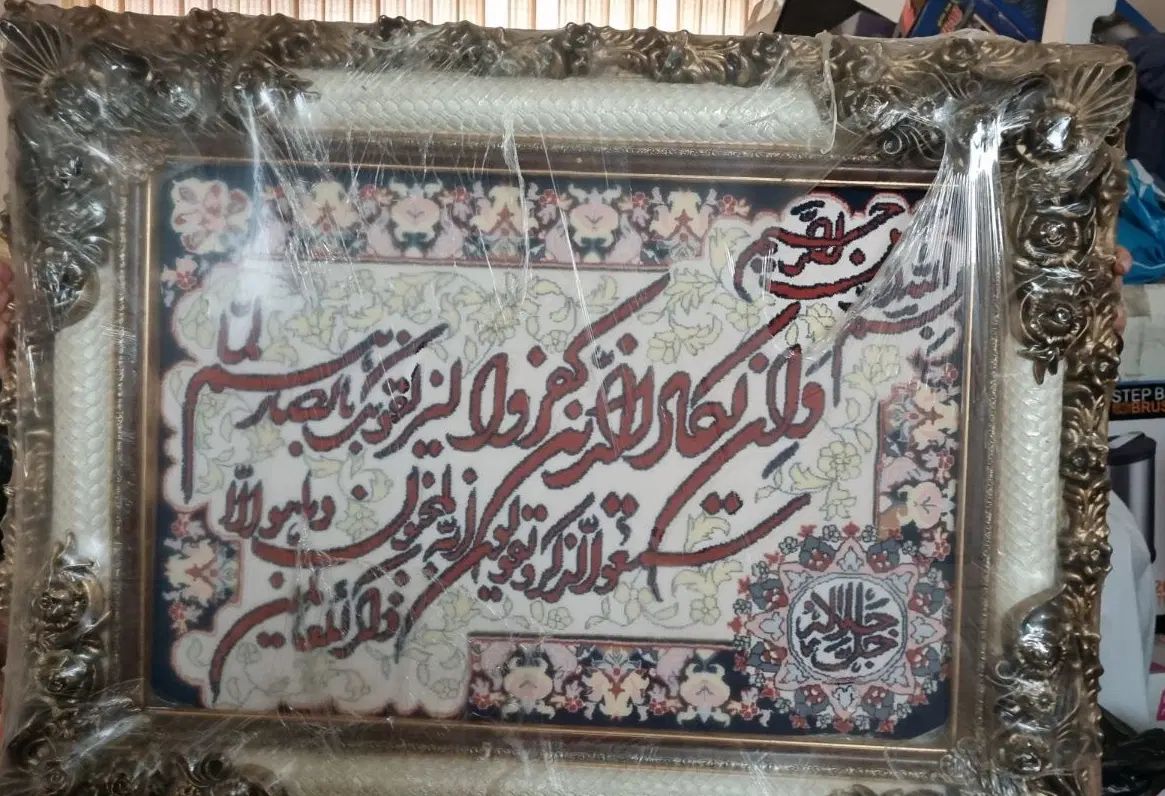 بسم الله الرحمن الرحیم
وان یکاد الذین کفروا لیزلقونک بابصارهم لما
سمعوا الذکر و یقولون انه لمجنون وما هو الا
ذکر للعالمین
جل جلاله
STEP B
BRUS